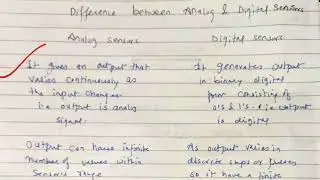 Difference between Analog & Digital Sensors
Analog sensors
Digital sensors
It gives an output that
varies continuously as
the input changes
i.e output is analog
signal.
It generates output
in binary digital
form consisting of
0's & 1's. i.e output
is digital
Output can have infinite
number of values within
Sensor's range
As output varies in
discrete steps or
so it have a finite